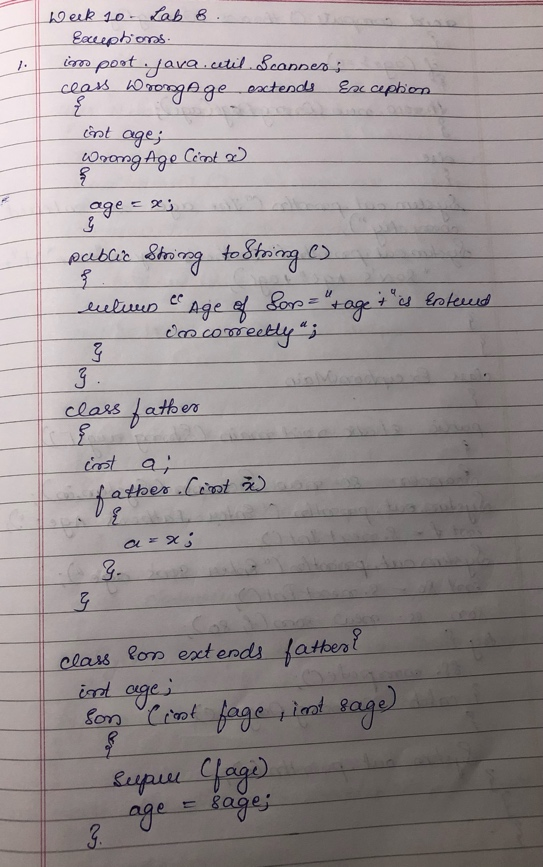 Week 10. Lab 8.
Exceptions.
1. import.java.util.Scanner;
class WrongAge extends Exception
{
int age;
WrongAge (int x)
{
age = x;
}
public String toString ()
{
return "Age of Son="+age+"is Entered
incorrectly";
}
}.
class father
{
int a;
father.(int x)
{
a = x;
}.
}
class Son extends father{
int age;
Son (int fage, int sage)
{
super (fage)
age = sage;
}.